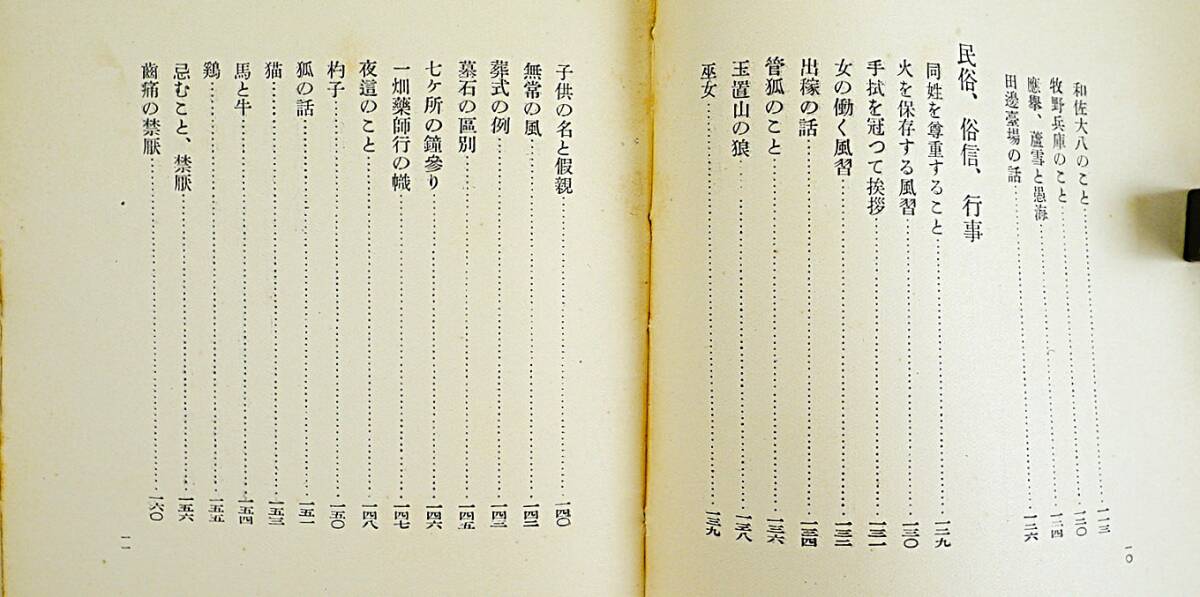 和佐大八のこと……一一三
牧野兵庫のこと……一二〇
應擧、蘆雪と愚海……一二四
田邊臺場の話……一二六
民俗、俗信、行事
同姓を尊重すること……一二九
火を保存する風習……一三〇
手拭を冠つて挨拶……一三一
女の働く風習……一三二
出稼の話……一三四
管狐のこと……一三六
玉置山の狼……一三八
巫女……一三九
一〇
子供の名と假親……一四〇
無常の風……一四二
葬式の例……一四三
墓石の區別……一四五
七ヶ所の鐘參り……一四六
一畑藥師行の幟……一四七
夜這のこと……一四八
杓子……一五〇
狐の話……一五一
猫……一五三
馬と牛……一五四
鷄……一五五
忌むこと、禁厭……一五六
齒痛の禁厭……一六〇
一一